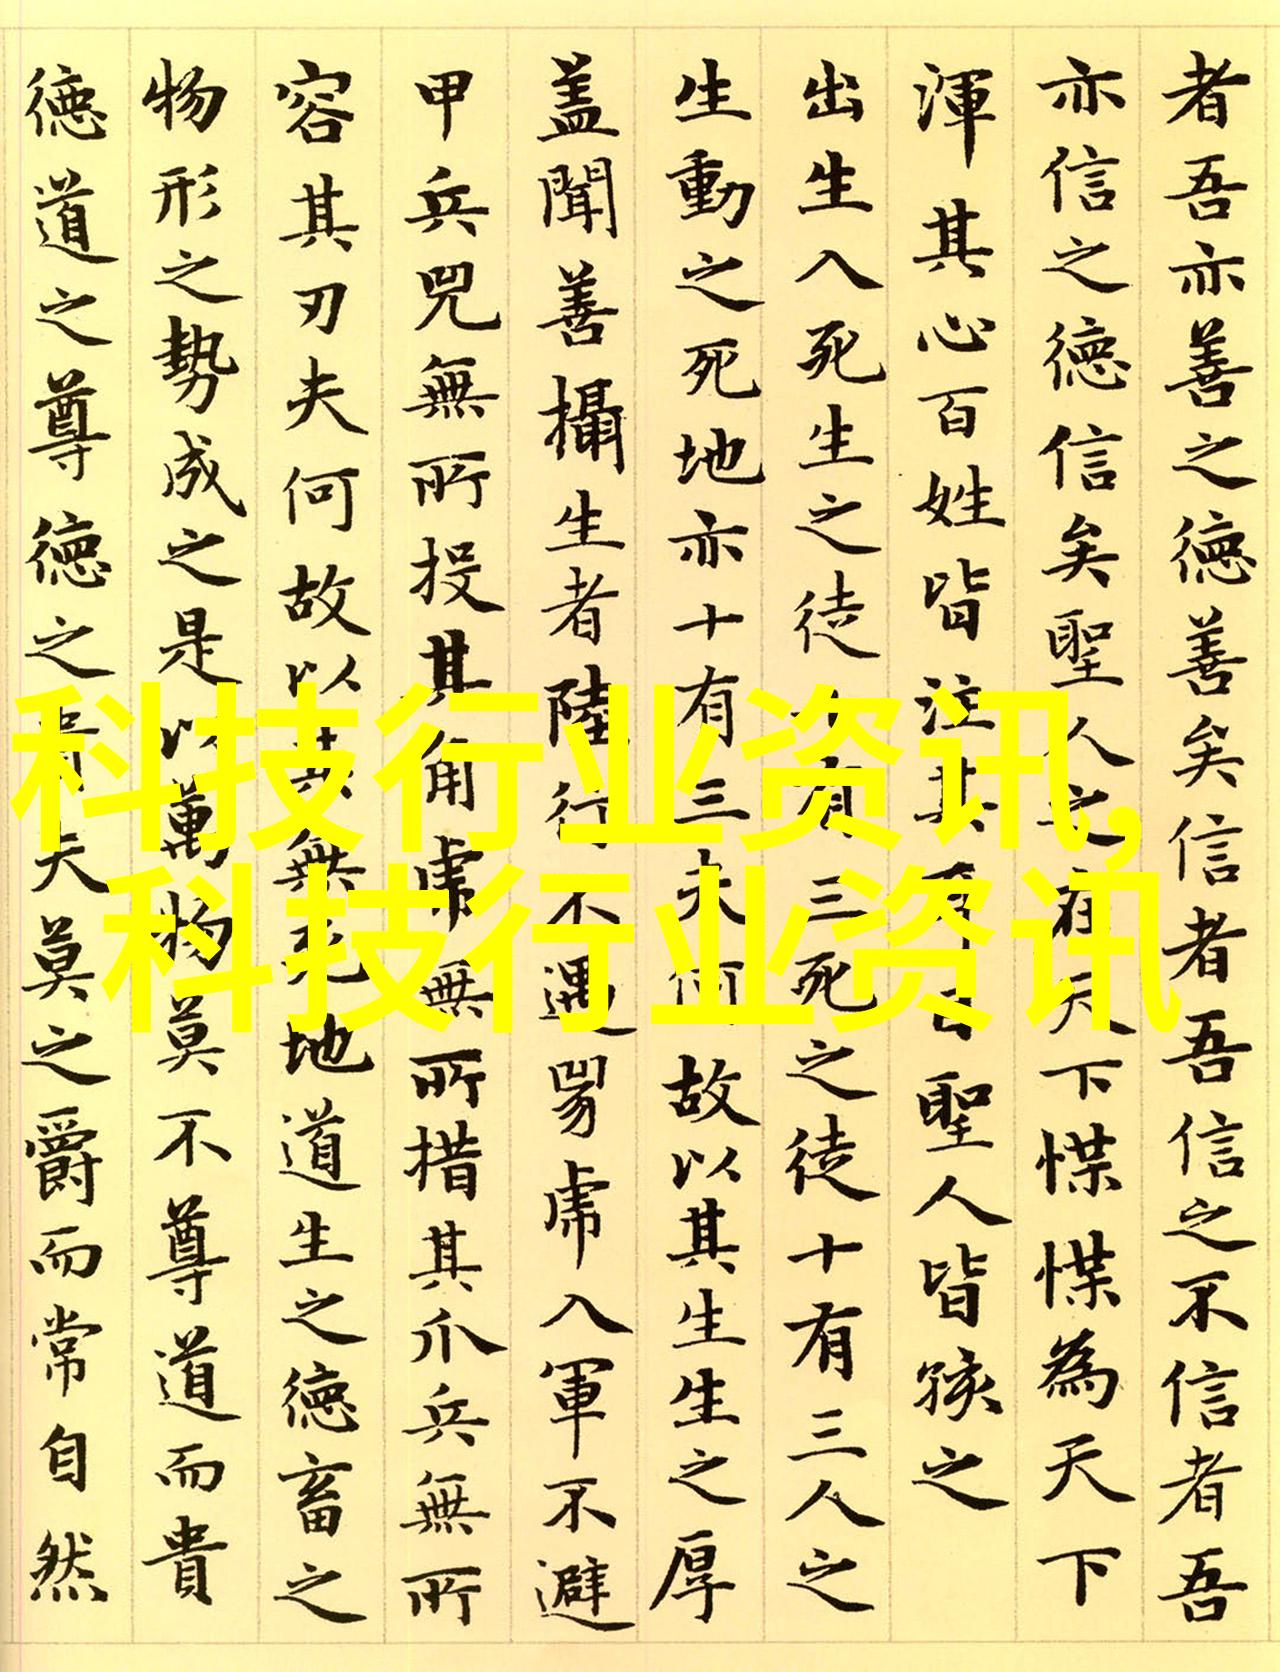 者吾亦善之德善矣信者吾信之不信者吾
亦信之德信矣聖人之在天下惵惵為天下
渾其心百姓皆注其耳目聖人皆孩之
出生入死生之徒十有三死之徒十有三人之
生動之死地亦十有三夫何故以其生生之厚
蓋聞善攝生者陸行不遇兕虎入軍不避
甲兵兕無所投其角虎無所措其爪兵無所
容其刃夫何故以其無死地道生之德畜之
物形之勢成之是以萬物莫不尊道而貴
德道之尊德之貴夫莫之爵而常自然
科技行业资讯,
科技行业资讯